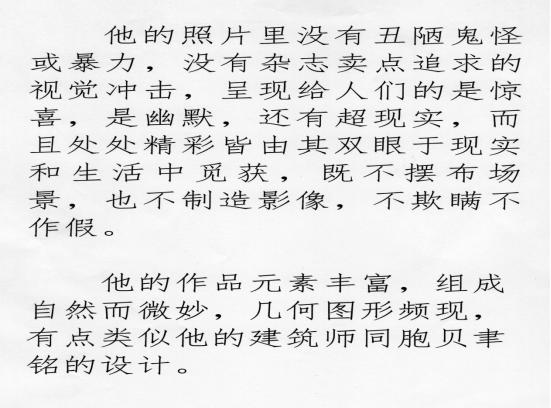 他的照片里没有丑陋鬼怪
或暴力，没有杂志卖点追求的
视觉冲击，呈现给人们的是惊
喜，是幽默，还有超现实，而
且处处精彩皆由其双眼于现实
和生活中觅获，既不摆布场
景，也不制造影像，不欺瞒不
作假。
他的作品元素丰富，组成
自然而微妙，几何图形频现，
有点类似他的建筑师同胞贝聿
铭的设计。